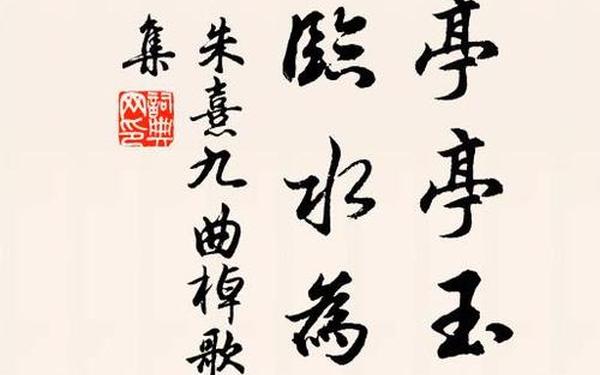 亭亭玉
臨水為
朱熹九曲棹歌
集
詞典网印